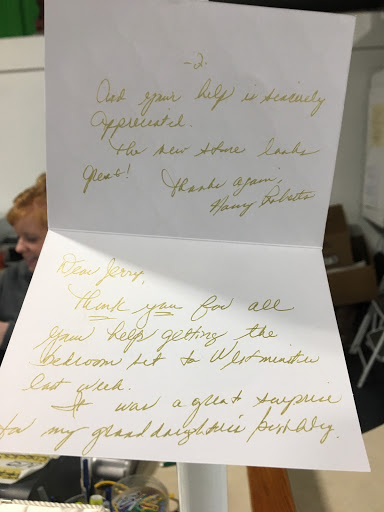 Dear Jerry,
Thank you for all
your help getting the
bedroom set to Westminster
last week.
It was a great surprise
for my granddaughter's birthday.
-2.
And your help is sincerely
appreciated.
The new store looks
great!
Thanks again,
Nancy Roberts